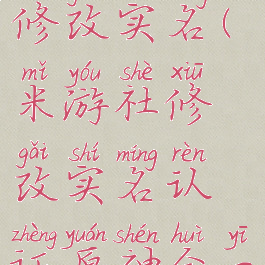 修改实名(
mǐ yóu shè xiū
米游社修
gǎi shí míng rèn
改实名认
zhèng yuán shén huì yī
证原神会一